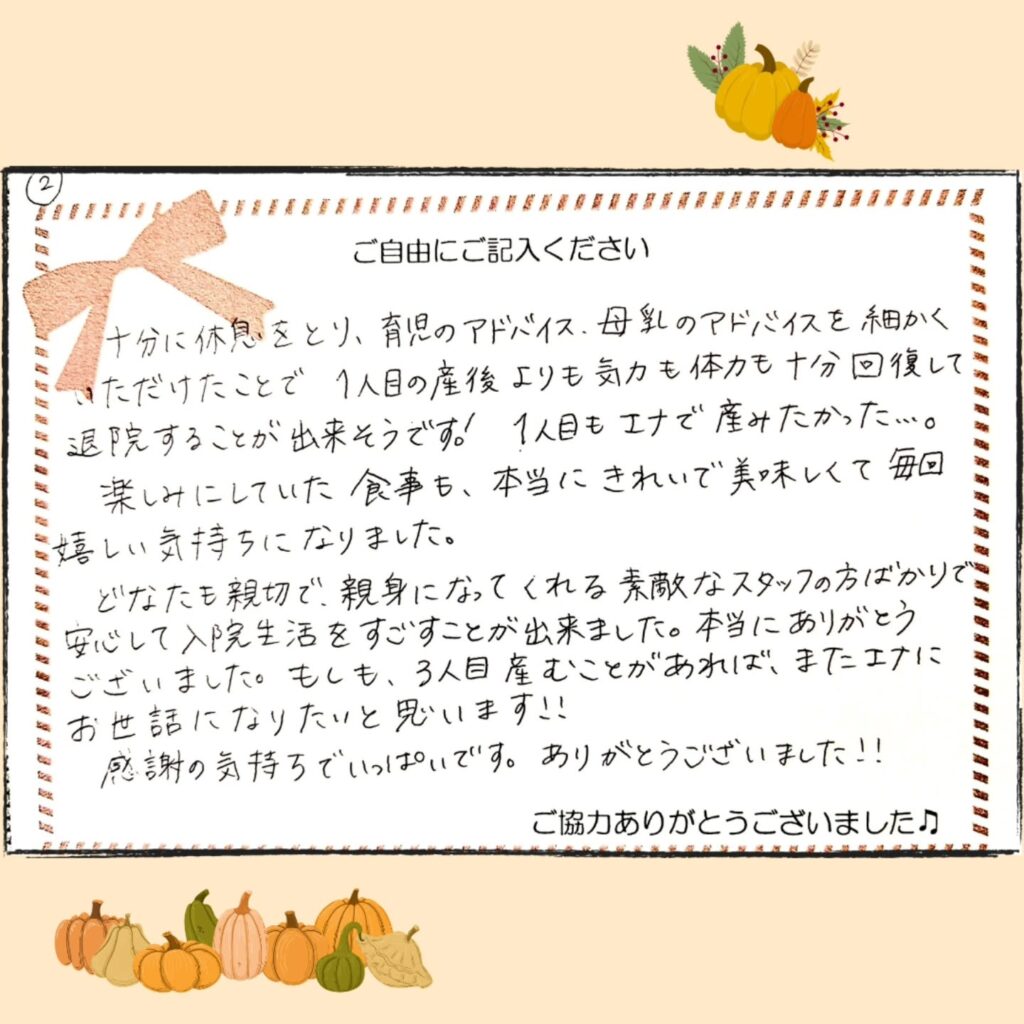 ②
ご自由にご記入ください
十分に休息をとり、育児のアドバイス、母乳のアドバイスを細かく
いただけたことで 1人目の産後よりも気力も体力も十分回復して
退院することが出来そうです! 1人目もエナで産みたかった…。
楽しみにしていた食事も、本当にきれいで美味しくて毎回
嬉しい気持ちになりました。
どなたも親切で、親身になってくれる素敵なスタッフの方ばかりで
安心して入院生活をすごすことが出来ました。本当にありがとう
ございました。もしも、3人目産むことがあれば、またエナに
お世話になりたいと思います!!
感謝の気持ちでいっぱいです。ありがとうございました!!
ご協力ありがとうございました♫